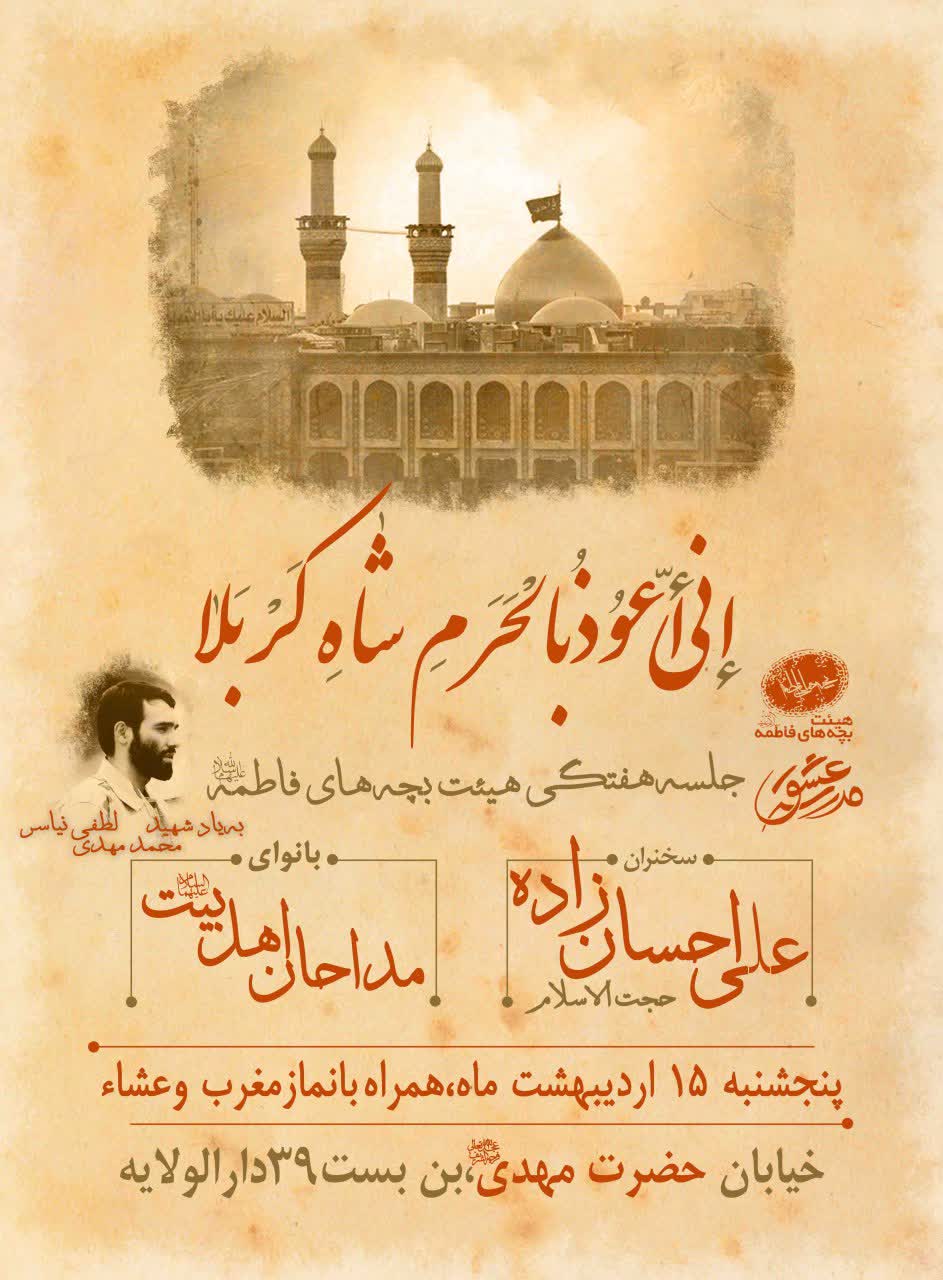 السلام علیك یا
إنی أعوذُ بالحَرَمِ شاهِ کَربَلا
هیئت
بچه های فاطمه
مدرسه عشق
جلسه هفتگی هیئت بچه های فاطمه سلام الله علیها
به یاد شهید محمد مهدی لطفی نیاسر
سخنران
علی احسان زاده
حجت الاسلام
بانوای
مداحان اهل بیت علیهم السلام
پنجشنبه ۱۵ اردیبهشت ماه،همراه بانماز مغرب وعشاء
خیابان حضرت مهدی،بن بست۳۹دارالولایه